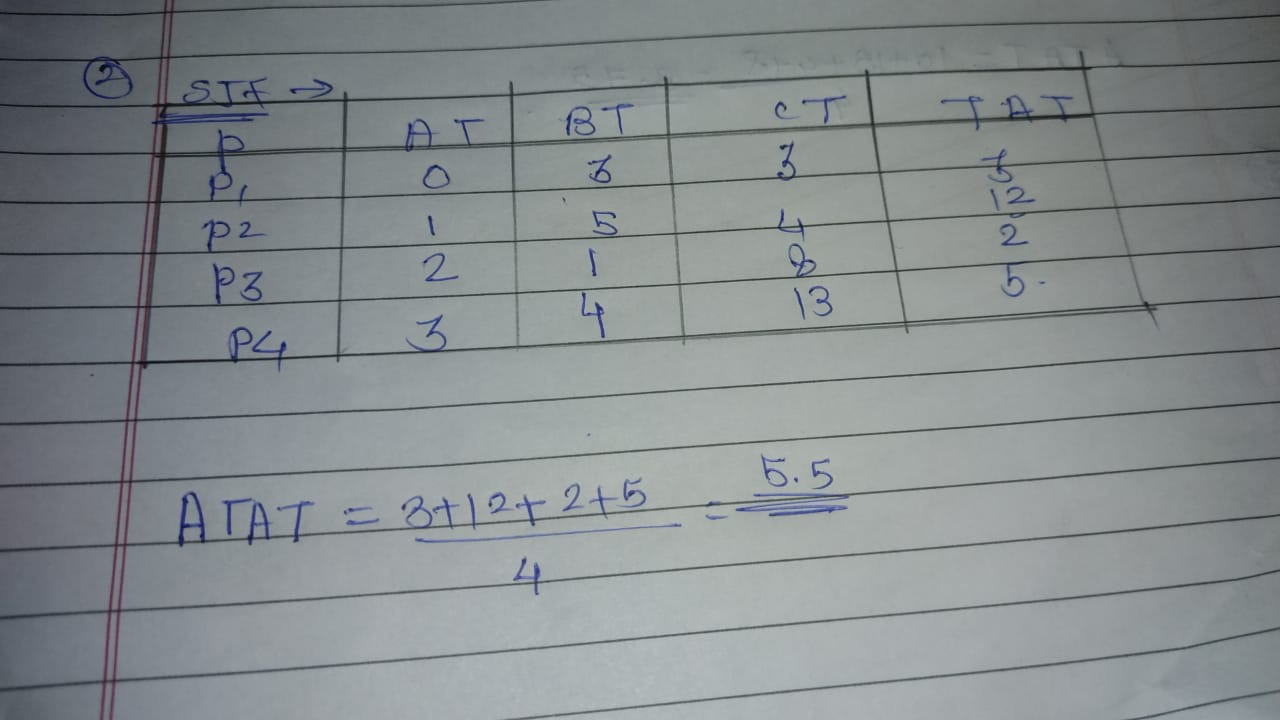 ② SJF →
P AT BT CT TAT
P1 0 3 3 3
P2 1 5 4 12
P3 2 1 8 2
P4 3 4 13 5.
ATAT = 3+12+2+5 / 4 = 5.5